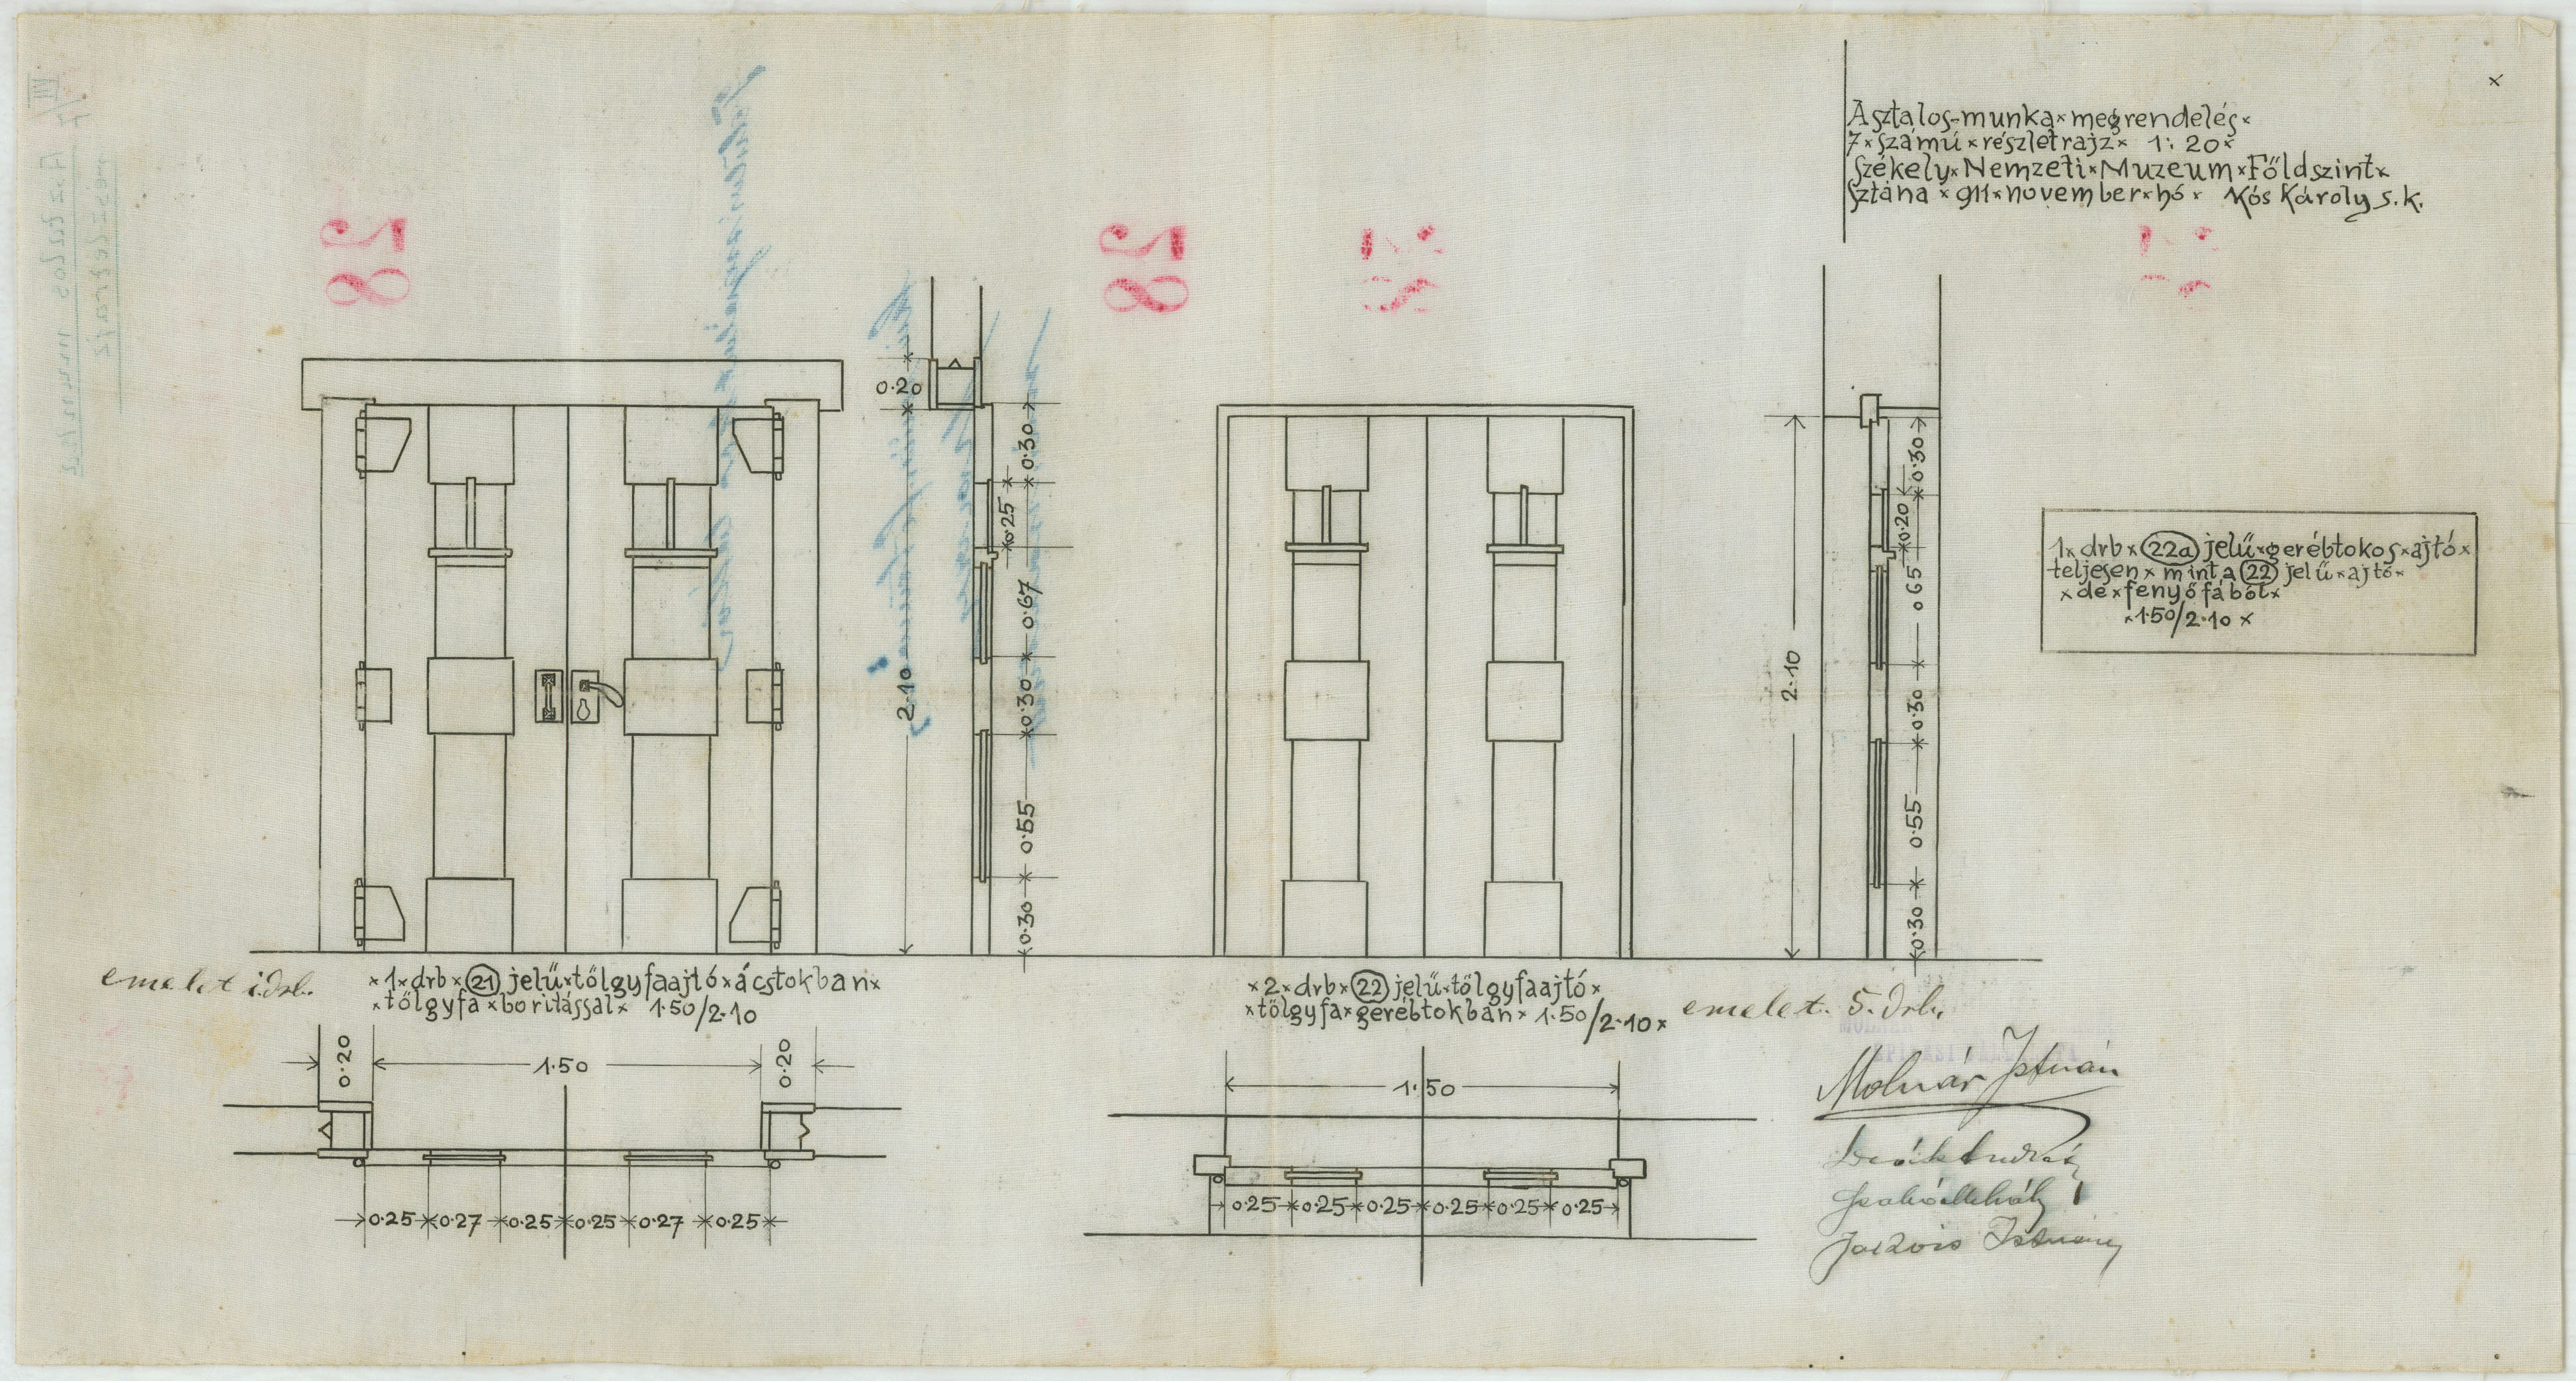 Asztalos-munka×megrendelés×
7×számú×részletrajz× 1:20×
Székely×Nemzeti×Muzeum×Földszint×
Sztána×911×november×hó× Kós Károly s.k.
82
82
0.20
2.10
0.30
0.25
0.67
0.30
0.55
0.30
2.10
0.30
0.20
0.65
0.30
0.55
0.30
1×drb×22a jelű×gerébtokos×ajtó×
teljesen×mint a 22 jelű×ajtó×
×de×fenyőfából×
×1.50/2.10×
emelet 1 drb.
×1×drb×21 jelű×tölgyfaajtó×ácstokban×
×tölgyfa×boritással× 1.50/2.10
×2×drb×22 jelű×tölgyfaajtó×
×tölgyfa×gerébtokban×1.50/2.10×
emelet. 5. drb.
0.20 1.50 0.20
0.25 0.27 0.25 0.25 0.27 0.25
1.50
0.25 0.25 0.25 0.25 0.25 0.25
Molnár István
István